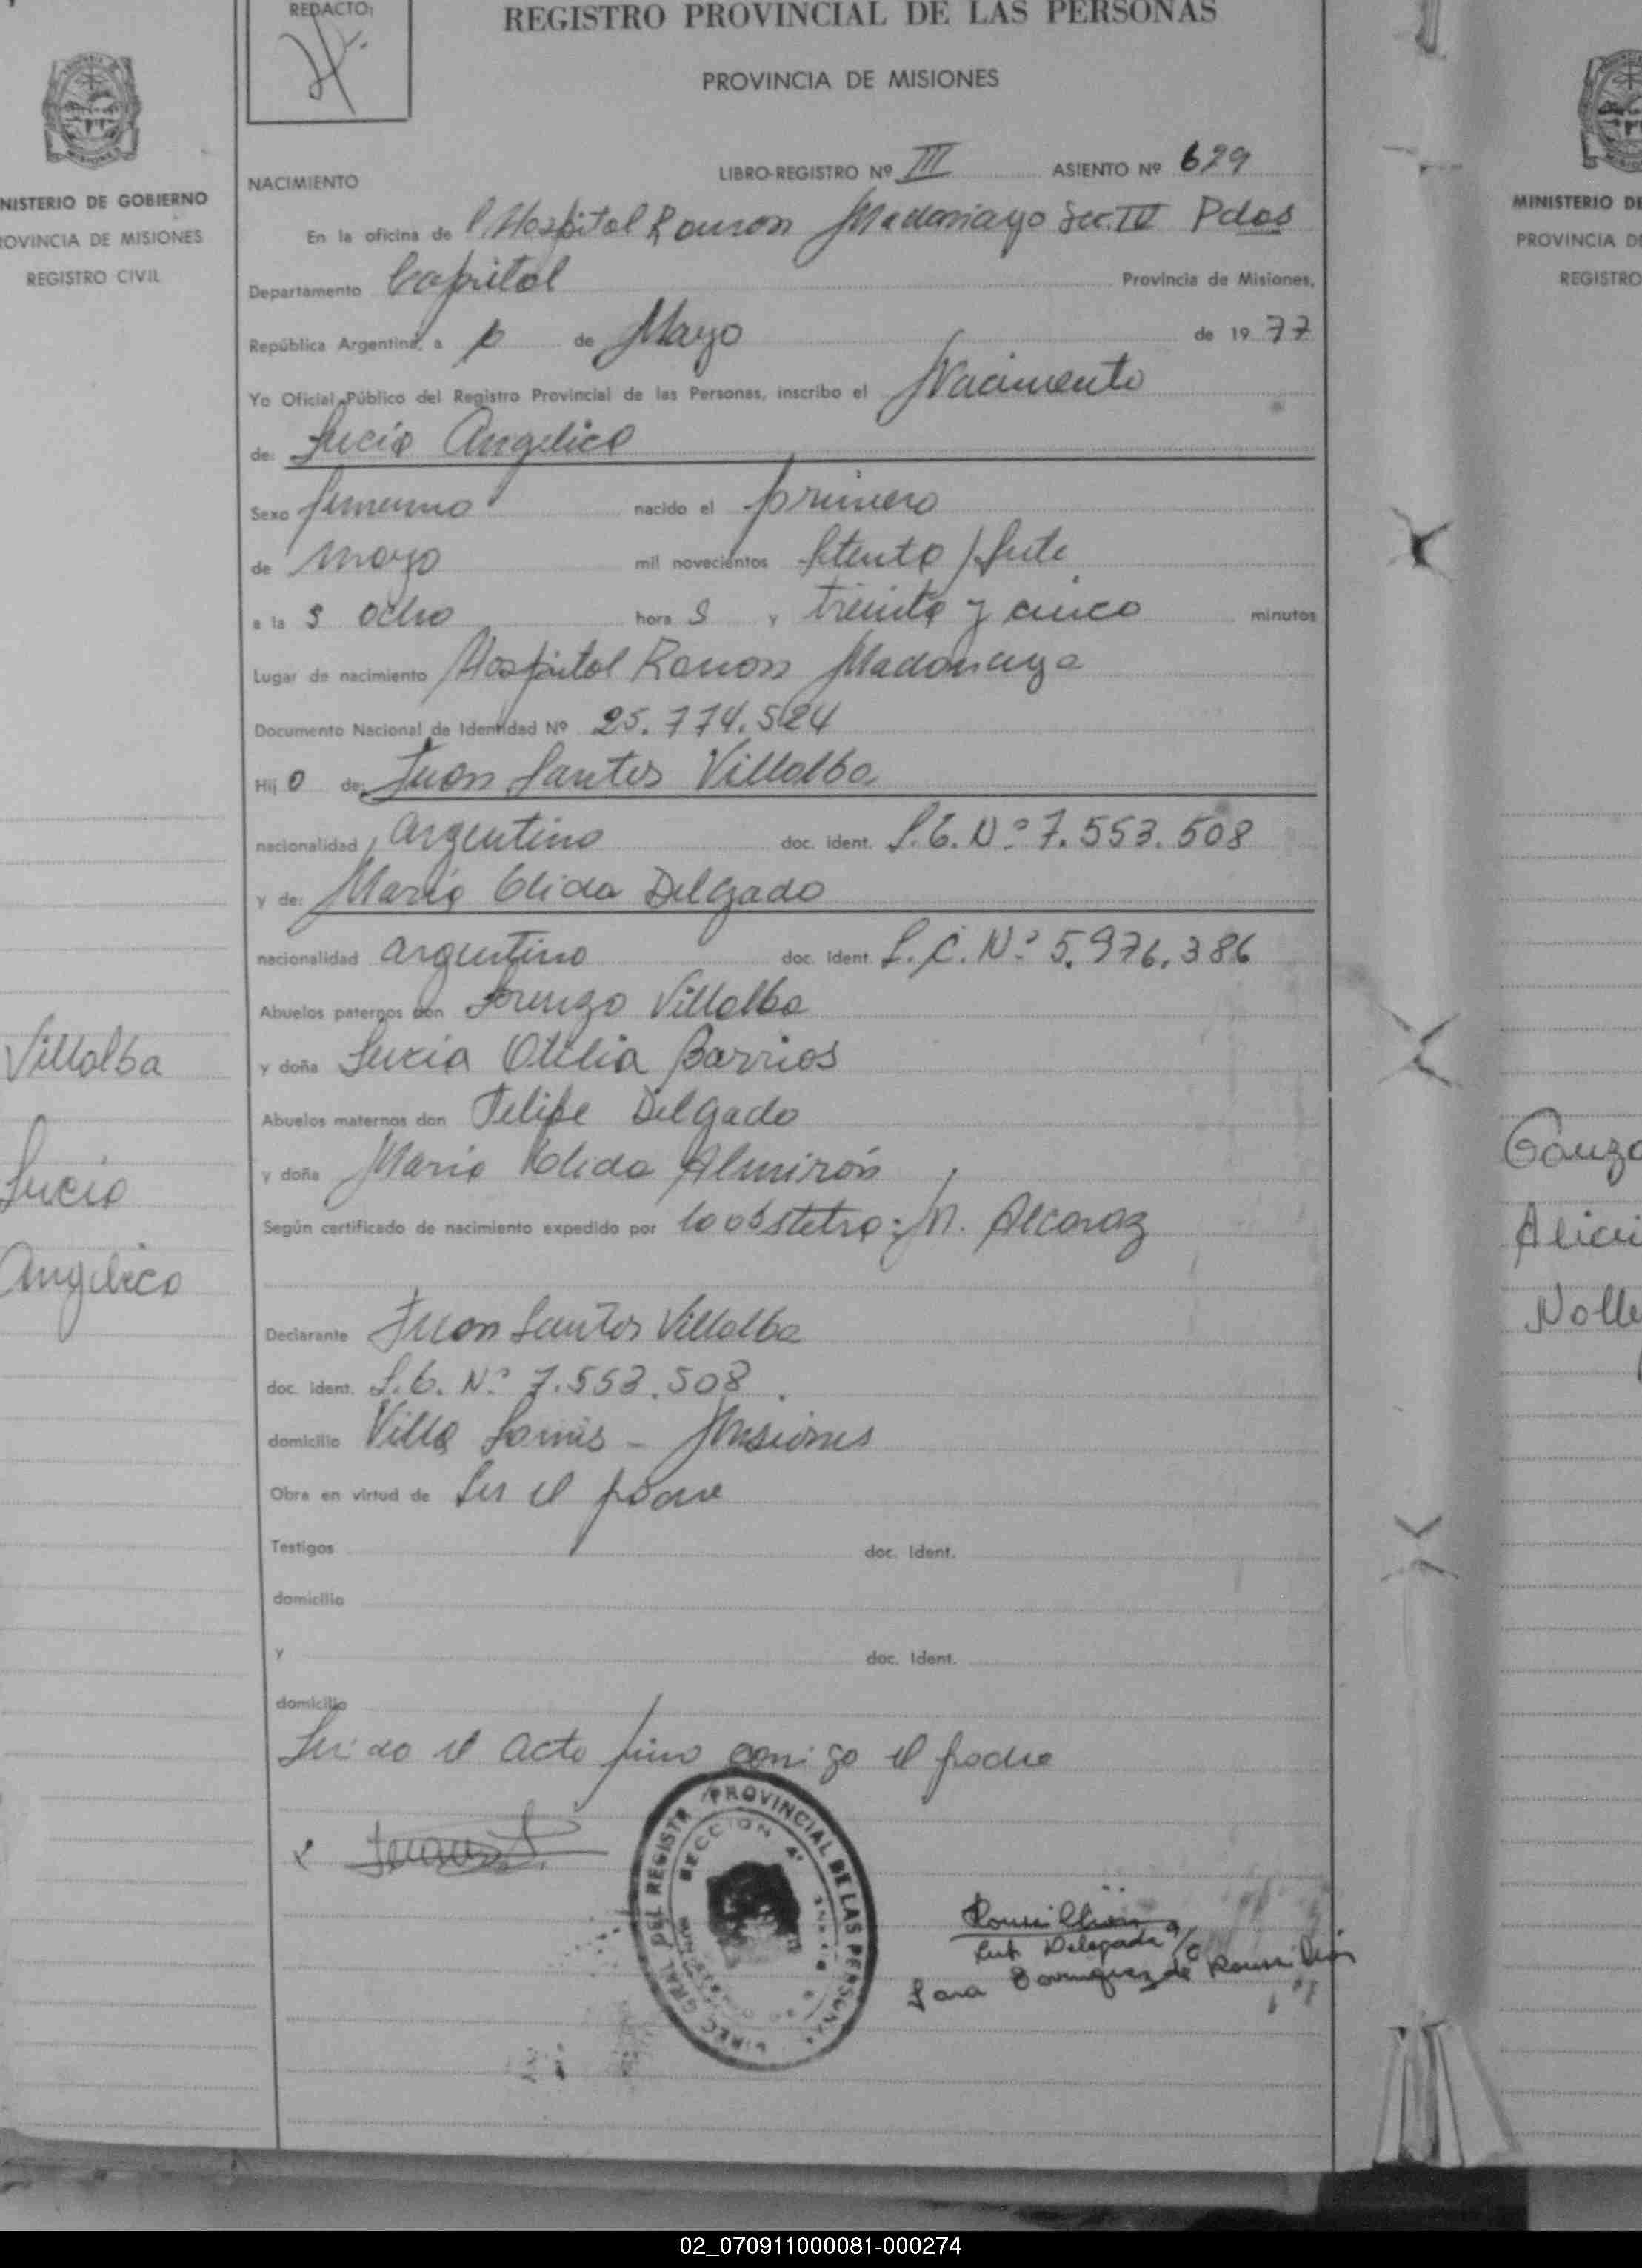 REDACTO:
REGISTRO PROVINCIAL DE LAS PERSONAS
PROVINCIA DE MISIONES
NISTERIO DE GOBIERNO
ROVINCIA DE MISIONES
REGISTRO CIVIL
NACIMIENTO
LIBRO-REGISTRO Nº III ASIENTO Nº 629
En la oficina de Hospital Ramon Madariaga Sec. IV Pdas
Departamento Capital Provincia de Misiones,
República Argentina, a de Mayo de 1977
Yo Oficial Público del Registro Provincial de las Personas, inscribo el Nacimiento
de: Lucia Angelica
Sexo femenino nacido el primero
de mayo mil novecientos setenta y siete
a la s ocho hora s y treinta y cinco minutos
Lugar de nacimiento Hospital Ramon Madariaga
Documento Nacional de Identidad Nº 25.774.524
Hij o de: Juan Santos Villalba
nacionalidad argentina doc. ident. L.E. Nº 7.553.508
y de: Maria Elida Delgado
nacionalidad argentina doc. ident. L.C. Nº 5.976.386
Abuelos paternos don Lorenzo Villalba
y doña Lucia Otilia Barrios
Abuelos maternos don Felipe Delgado
y doña Maria Elida Almirón
Según certificado de nacimiento expedido por la obstetra: M. Alcaraz
Declarante Juan Santos Villalba
doc. ident. L.E. Nº 7.553.508.
domicilio Villa Lanus - Misiones
Obra en virtud de ser el padre
Testigos doc. Ident.
domicilio
y doc. Ident.
domicilio
Leido el acta firma conmigo el padre
x
DIREC. GRAL. DEL REGISTR. PROVINCIAL DE LAS PERSONAS
SECCION 4ª
Sub Delegada
Sara Dominguez de
Villalba
Lucia
Angelica
MINISTERIO DE
PROVINCIA DE
REGISTRO
Gonza
Alicia
02_070911000081-000274